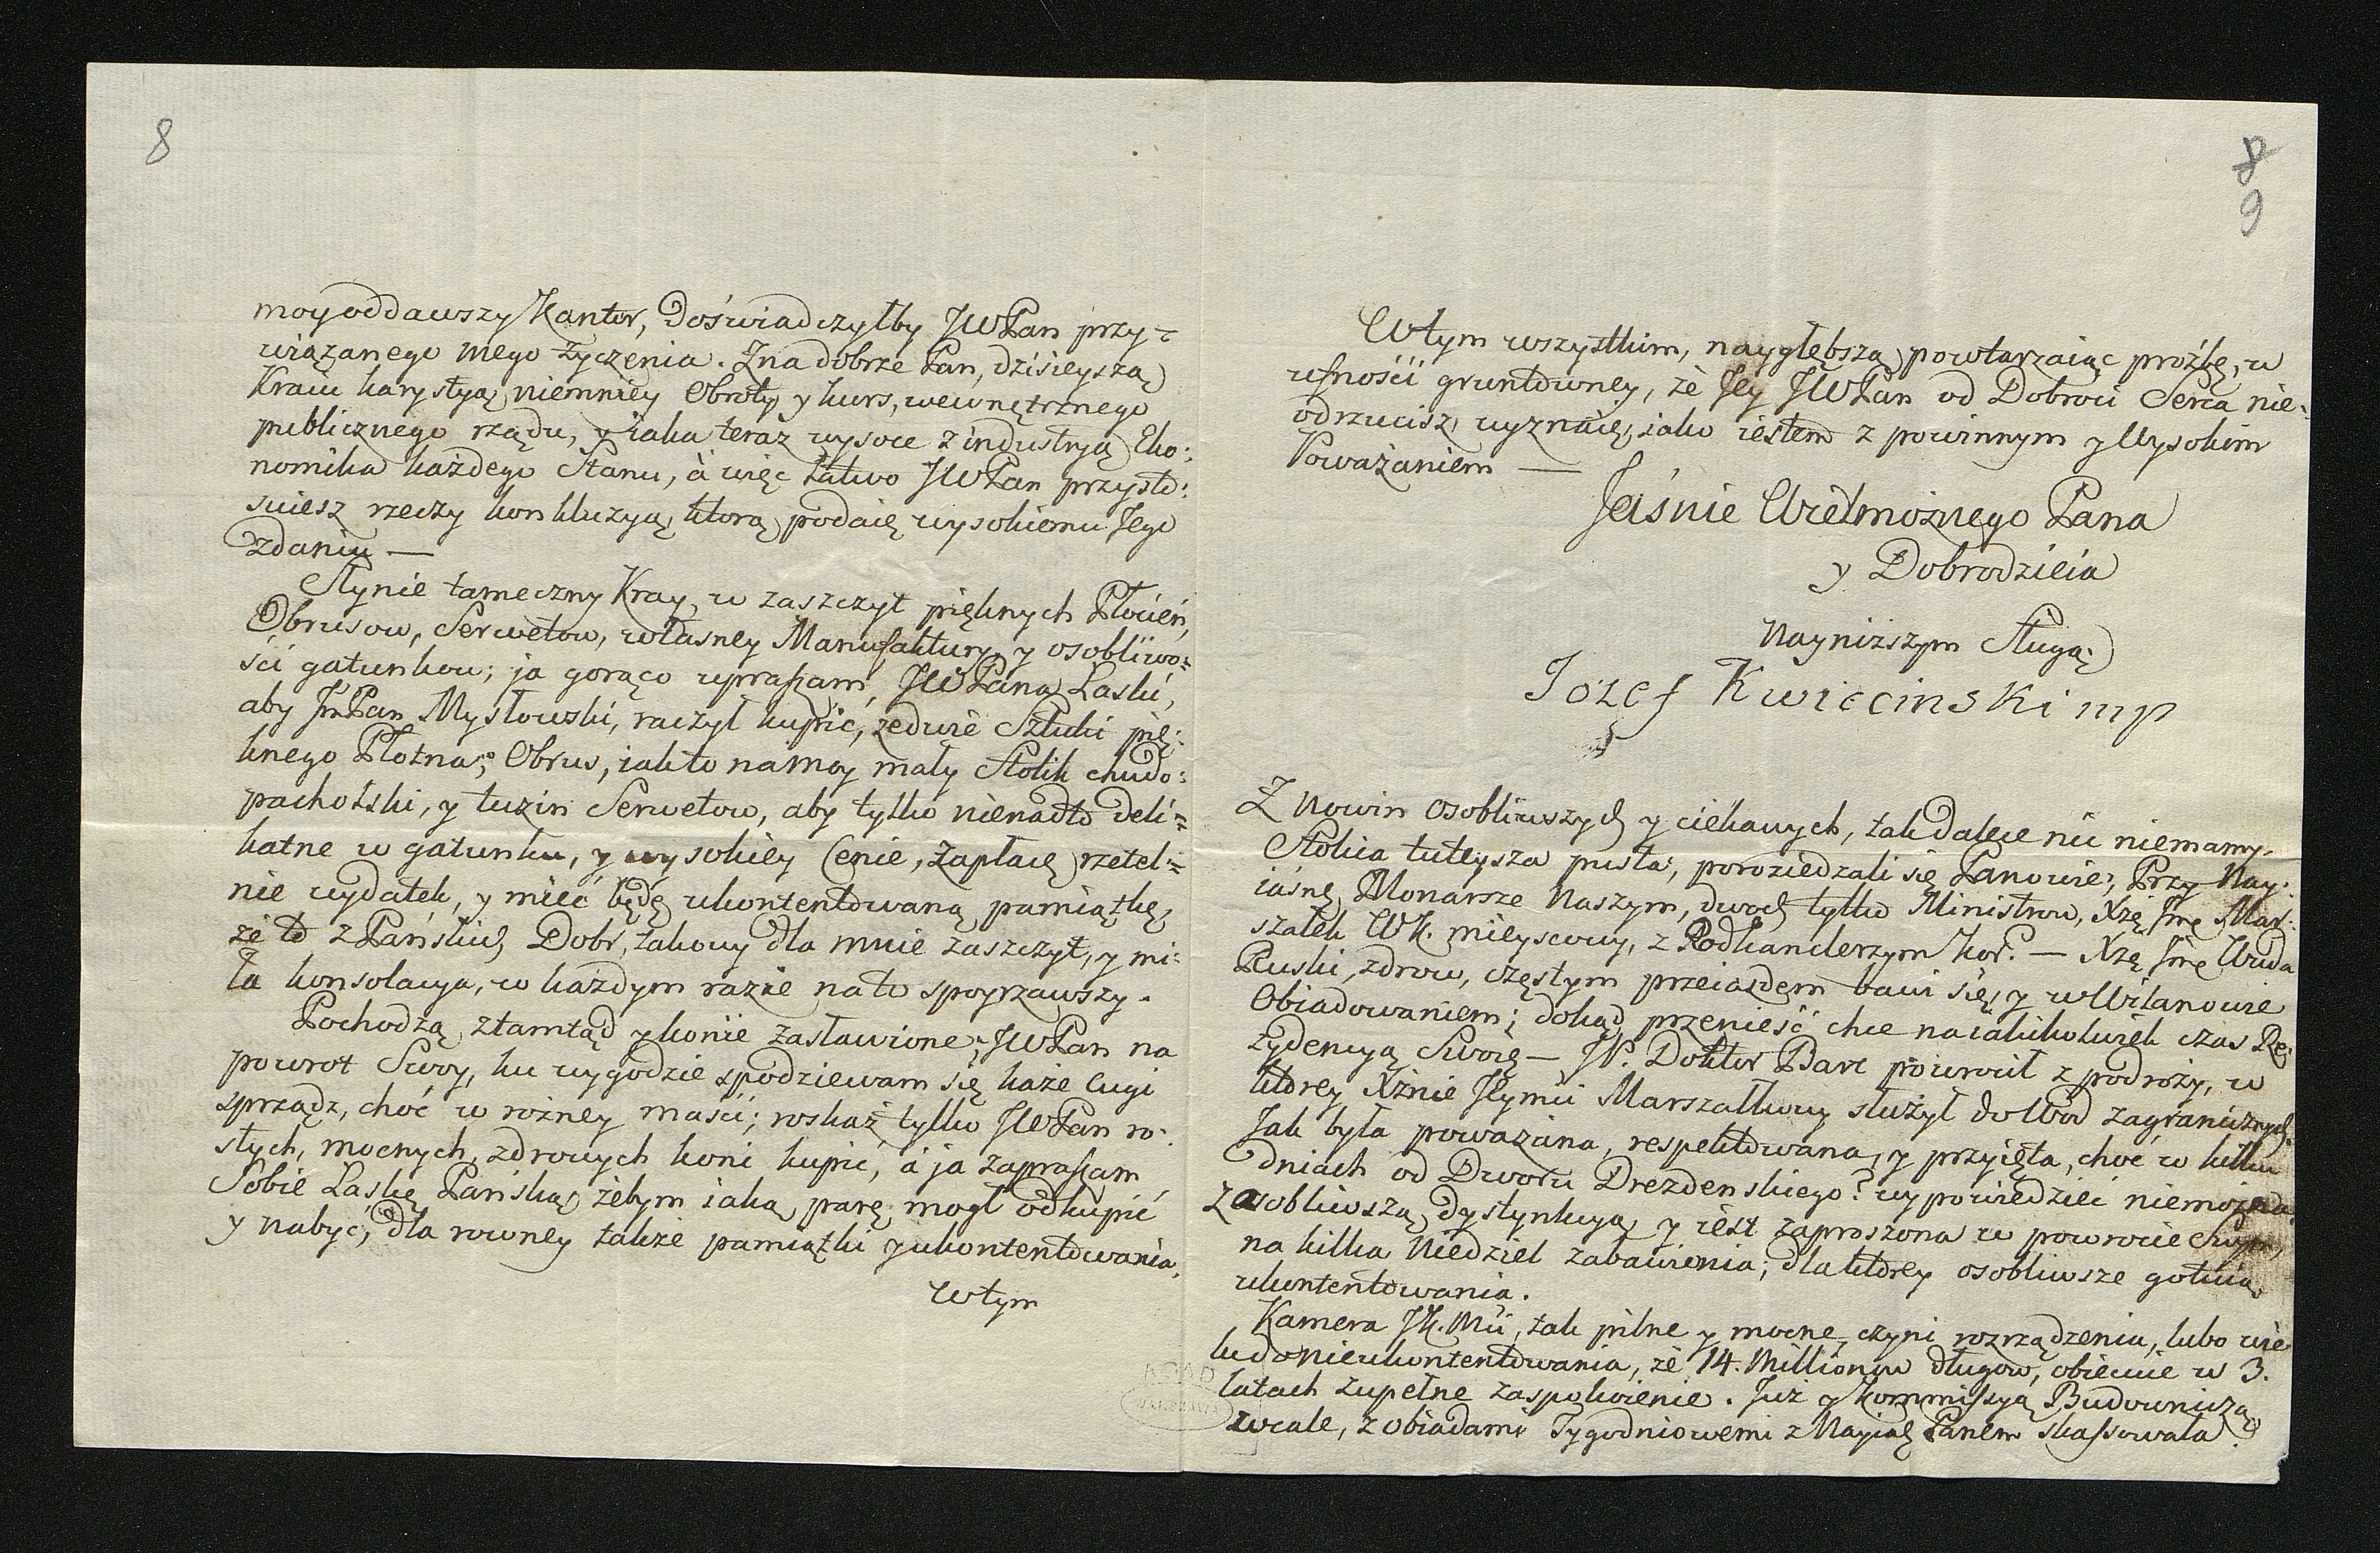 8
moy oddawszy Kantor, Doświadczyłby JWPan przy=
wiązanego mego życzenia. Zna dobrze Pan, dzisieyszą
Kraiu karystyą, niemniey Obroty y kurs, wewnętrznego
publicznego rządu, y iaka teraz wysoce z industryą Eko:
nomika każdego Stanu, à więc łatwo JWPan przysto:
suiesz rzeczy konkluzyą, ktorą podaię wysokiemu Jego
zdaniu —
Słynie tameczny Kray, w zaszczyt pięknych Płocien,
Obrusow, Serwetow, własney Manufaktury, y osobliwo=
ści gatunkow; ja gorąco upraszam JWPana Laski,
aby JmPan Mysłowski, raczył kupić, ze dwie Sztuki pię:
knego Płotna; Obrus, iak to na moy mały Stolik chudo:
pachołski, y tuzin Serwetow, aby tylko nienadto deli=
katne w gatunku, y wysokiey Cenie, Zapłacę rzetel=
nie wydatek, y mieć będę ukontentowaną pamiątkę,
że to z Pańskich Dobr, takowy dla mnie zaszczyt, y mi:
ła konsolacya, w każdym razie na to spoyrzawszy.
Pochodzą ztamtąd y konie zastawione; JWPan na
powrot Swoy, ku wygodzie spodziewam się każe Cugi
sprządz, choć w rożney maści; roskaż tylko JWPan ro:
słych, mocnych, zdrowych koni kupić, à ja zapraszam
Sobie Laskę Pańską, żebym iaką parę mogł odkupić
y nabyć, dla rowney także pamiątki y ukontentowania.
Wtym
8
9
Wtym wszystkim, nayglębszą powtarzaiąc proźbę, w
ufności gruntowney, że Jey JWPan od Dobroci Serca nie:
odrzucisz, wyznaię, iako iestem z powinnym y Wysokim
Poważaniem —
Jaśnie Wielmożnego Pana
y Dobrodzieia
Nayniższym Sługą
Jozef Kwiecinski mp
Z Nowin osobliwszych y ciekawych, tak dalece nic niemamy.
Stolica tuteysza pusta; poroziedzali się Panowie; Przy Nay:
iaśnę Monarsze Naszym, dwoch tylko Ministrow, Xżę Jmę Mar:
szałek WK. mieyscowy, z Podkanclerzym Kor. — Xżę Jmę Wwda
Ruski, zdrow, częstym przeiazdem bawi się, y w Wilanowie
Obiadowaniem; dokąd przenieść chce na iakikolwiek czas Re:
zydencyą Swoię — JP. Doktor Barc powrocił z podroży, w
ktorey Xżnie Jeymci Marszałkowy służył do Wod zagranicznych.
Jak była poważana, respektowana, y przyięta, choć w kilku
dniach od Dworu Drezdenskiego? wypowiedzieć niemożna.
Z osobliwszą dystynkcyą y iest zaproszona w powrocie Swym,
na kilka Niedziel zabawienia; dla ktorey osobliwsze gotuią
ukontentowania.
Kamera JK.Mci, tak pilne y mocne czyni rozrządzenia, lubo wie
lu do nieukontentowania, że 14. Millionow długow, obiecuie w 3.
latach zupełne zaspokoienie. Już y Kommissyą Budowniczą
wcale, z obiadami Tygodniowemi z Nayiaś Panem skassowała.
AGAD
WARSZAWA